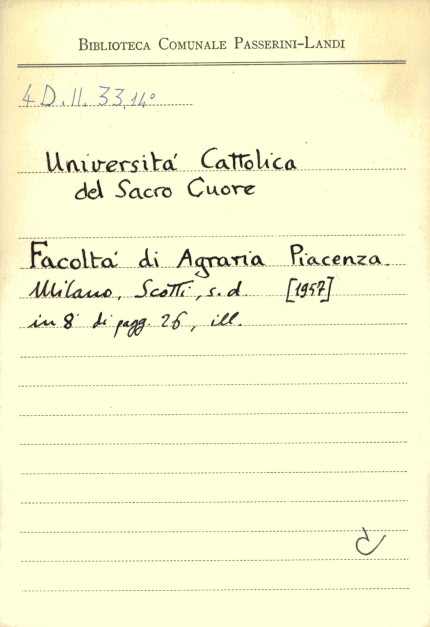 BIBLIOTECA COMUNALE PASSERINI-LANDI
4 D. II. 33,14°
Universitá Cattolica
del Sacro Cuore
Facoltá di Agraria Piacenza.
Milano, Scotti, s.d. [1957]
in 8° di pagg. 26, ill.